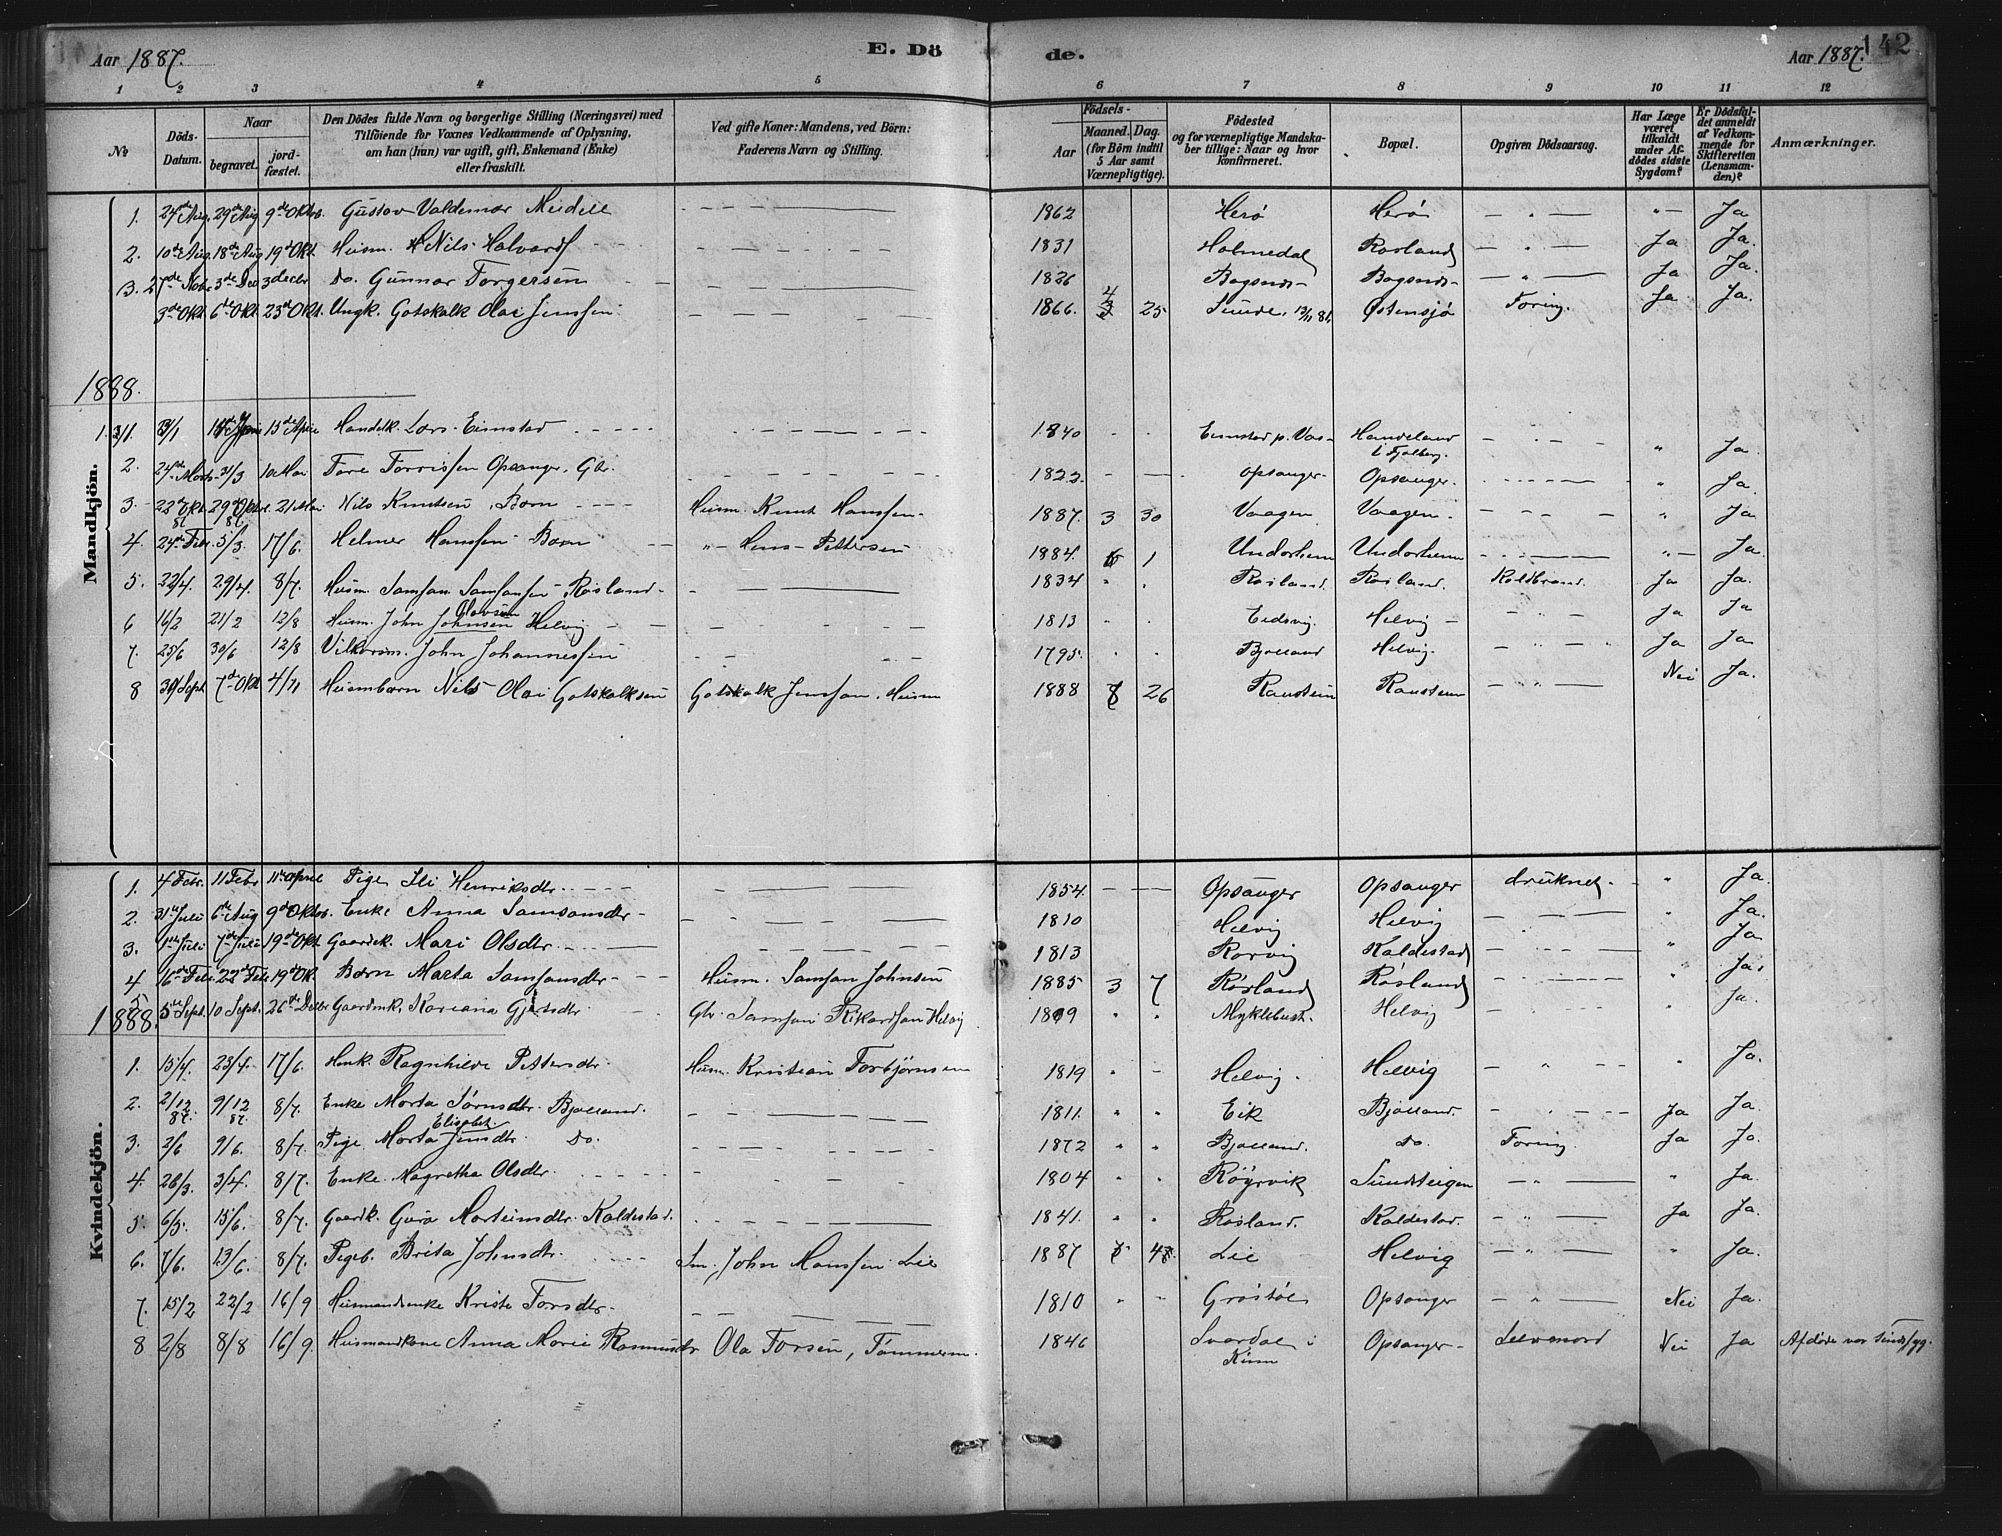 Aar 1887. E. Dö de. Aar 1887. 142
1 2 3 4 5 6 7 8 9 10 11 12
No Döds-Datum. Naar begravet. jord-fæstet. Den Dödes fulde Navn og borgerlige Stilling (Næringsvei) med Tilföiende for Voxnes Vedkommende af Oplysning, om han (hun) var ugift, gift, Enkemand (Enke) eller fraskilt. Ved gifte Koner: Mandens, ved Börn: Faderens Navn og Stilling. Födsels- Aar Maaned. Dag. (for Börn indtil 5 Aar samt Værnepligtige). Födested og for værnepligtige Mandskaber tillige: Naar og hvor konfirmeret. Bopæl. Opgiven Dödsaarsag. Har Læge været tilkaldt under Afdödes sidste Sygdom? Er Dödsfaldet anmeldt af Vedkommende for Skifteretten (Lensmanden)? Anmærkninger.
Mandkjön.
1. 24de Aug. 29de Aug 9de Oktob. Gustav Valdemar Meidell 1862 Herö Herö Ja
2. 10de Aug. 18de Aug 19de Okt. Husm. Nils Halvards 1831 Holmedal Rosland Ja Ja.
3. 27de Nobr. 3de Dec 3 decbr Do. Gunnar Torgersen 1826 Bogsnds- Bogsnds- Ja Ja.
3de Okt. 6de Okt. 23de Okt. Ungk. Gotskalk Olai Jenssen 1866. 4 25 Sunde, Østensjø Tæring. Ja Ja.
1888.
1. 3/1. 3/1 15de Aprl Handelk. Lars Eimstad 1840 Eimstad p. Vos- Handeland i Fjelberg. " Ja.
2. 24de Marts 31/3 10 Mai Tore Torrissen Opsanger, Gbr. 1822 Opsanger Opsanger. " Ja.
3 22de Okt. 87 29de Oktbr. 87 21 Mai Nils Knutsen, Barn Husm. Knut Hansen 1887. 3 30 Vaagen Vaagen " Ja
4. 24de Febr. 5/3 17/6 Helmer Hansen Barn "- Hans Pettersen 1884. 6 1 Undarheim Undarheim " Ja.
5. 22/4. 29/4. 8/7. Husm. Samson Samsonsen Røsland 1834 " . Røsland. Røsland. Koldbrand. Ja Ja.
6 16/2 21/2 12/8 Husm. John Johnsen Olavsen Helvig 1813 . . Eidsvig. Helvig Ja Ja
7. 25/6 30/6 12/8 Vilkårsm. John Johannessen 1795. . . Bjoland Helvig. Ja Ja
8 30/Sept. 7de Okt 4/11 Husmbarn Nils Olai Gotskalksen Gotskalk Jenssen. Husm 1888 8 26 Raustein Raustein Nei Ja.
Kvindekjön.
1. 4 Febr. 11 Febr. 11de april Pige Ili Henriksdtr. 1854. Opsanger Opsanger druknet. " Ja.
2. 31te Juli 6te Aug 9de Oktob. Enke Anna Samsonsdtr 1810 Helvig Helvig " Ja.
3. 1ste Juli 7de Juli 19de Okt. Gaardek. Mari Olsdtr. 1813 Rørvig Kaldestad " Ja
4 16de Febr 22de Febr 19de Ok. Barn Marta Samsonsdtr Husm. Samson Johnsen 1885 3 7 Røsland Røsland " Ja.
5 5te Sept. 10 Sept. 26de Decbr Gaardmk. Koriana Gjertsdtr Gbr. Samson Rikardsen Helvig 1809 " " Myklebust. Helvig " Ja.
1888.
1. 15/4. 23/4. 17/6. Husk. Ragnhilde Pettersdtr. Husm. Kristian Torbjørnsen 1819 " - Helvig. Helvig " Ja.
2. 2/12 87. 9/12 87. 8/7. Enke Marta Tørnsdtr. Bjoland. 1811. " " Eik Bjoland. Ja Ja.
3. 2/6 9/6. 8/7. Pige Marta Elisabet Jensdtr. Do. 1872 " " Bjoland. Do. Tæring Ja Ja.
4. 26/3. 3/4. 8/7. Enke. Magretha Olsdtr. 1804 " " Røyrvik Sundsteigen " Ja.
5. 6/5. 15/6. 8/7. Gaardk. Guro Morteinsdtr. Kaldestad. 1841. " " Røsland. Kaldestad. Ja Ja.
6. 7/6. 13/6. 8/7. Pigeb. Brita Johnsdtr. Sm. John Monssen Lie 1887 Lie Helvig " Ja.
7. 15/2 22/2 16/9 Husmandsenke Kristi Torsdtr. 1810 " " Grøstøl Opsanger Nei Ja.
8 2/8 8/8 16/9. Husmandkone Anna Marie Rasmusdtr Ola Torsen, Tømmerm. 1846 Svardal i Kinn Opsanger- Selvmord Nei Ja Afdøde var sindssyg.